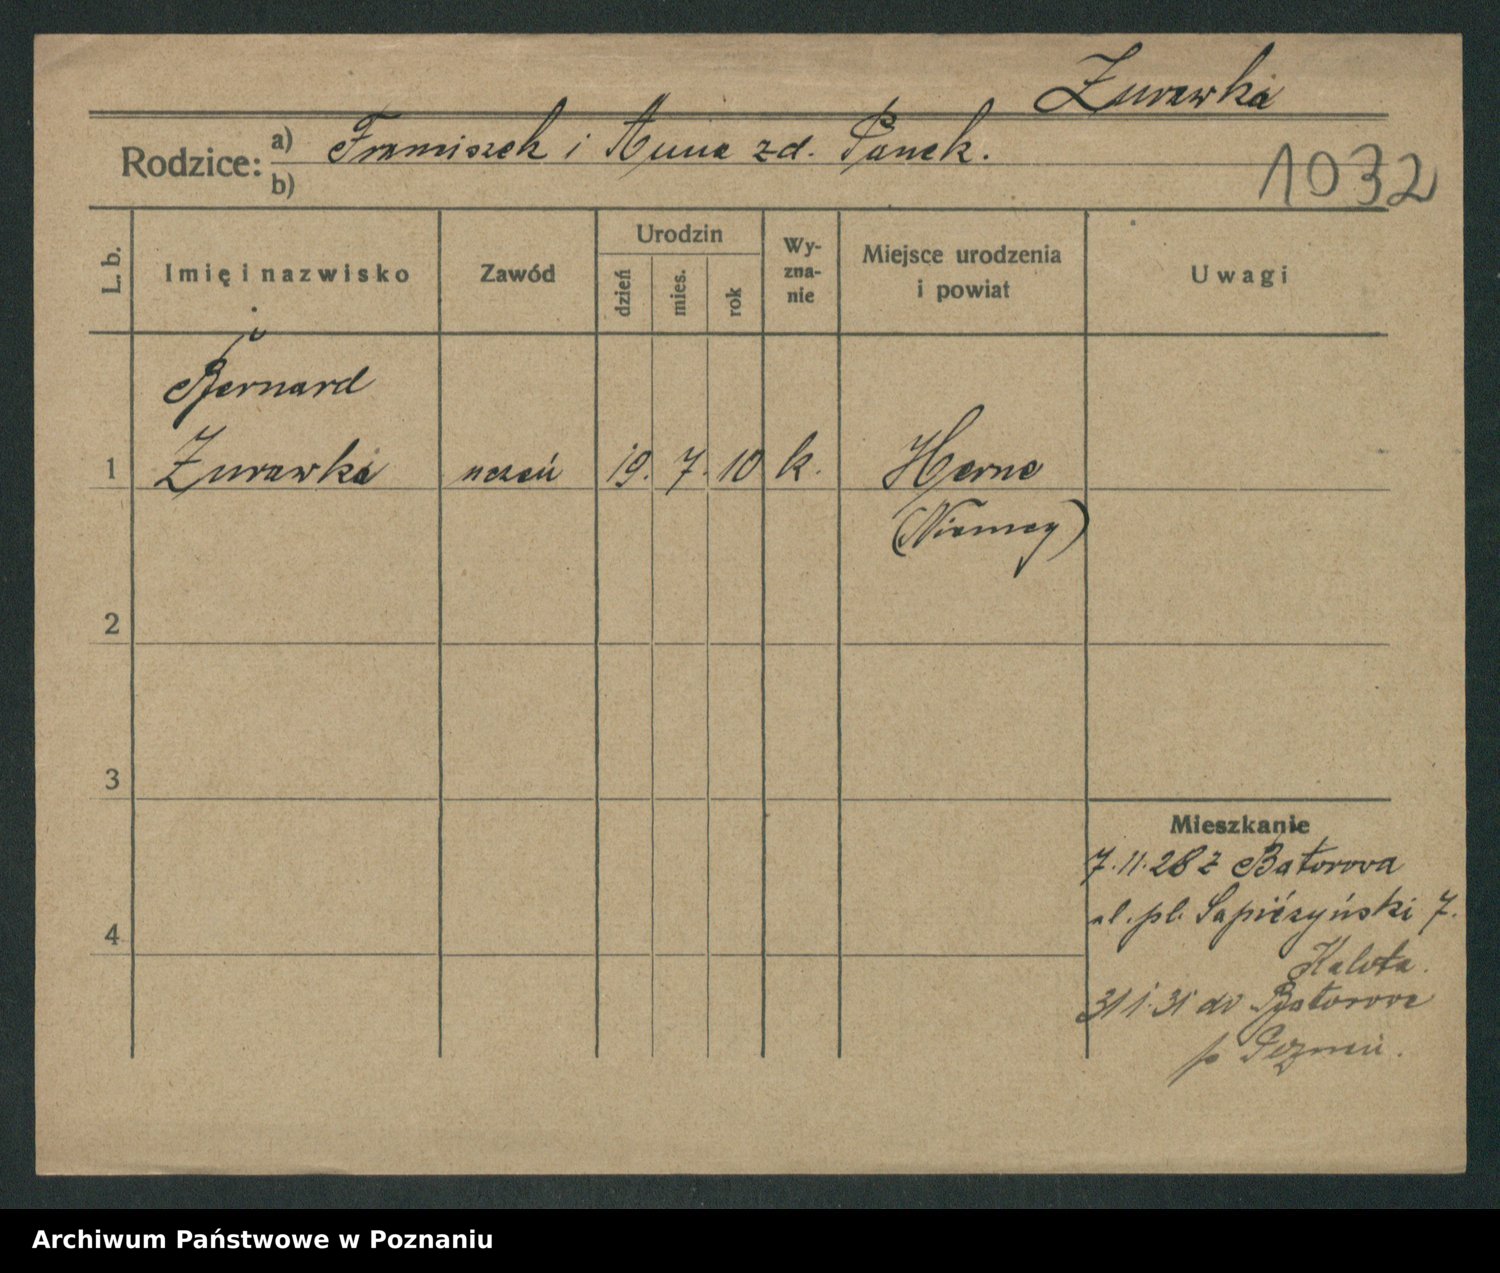 Żurawka
Rodzice: a) Franciszek i Anna zd. Panek.
b)
1032
L. b.
Imię i nazwisko
Zawód
Urodzin
dzień
mies.
rok
Wy-
zna-
nie
Miejsce urodzenia
i powiat
Uwagi
Bernard
1 Żurawka uczeń 19. 7. 10 k. Herne
(Niemcy)
2
3
4
Mieszkanie
7.11.28 z Batorowa
pl. Sapieżyński 7.
31 1. 31 do Batorowa
p Poznań.
Archiwum Państwowe w Poznaniu